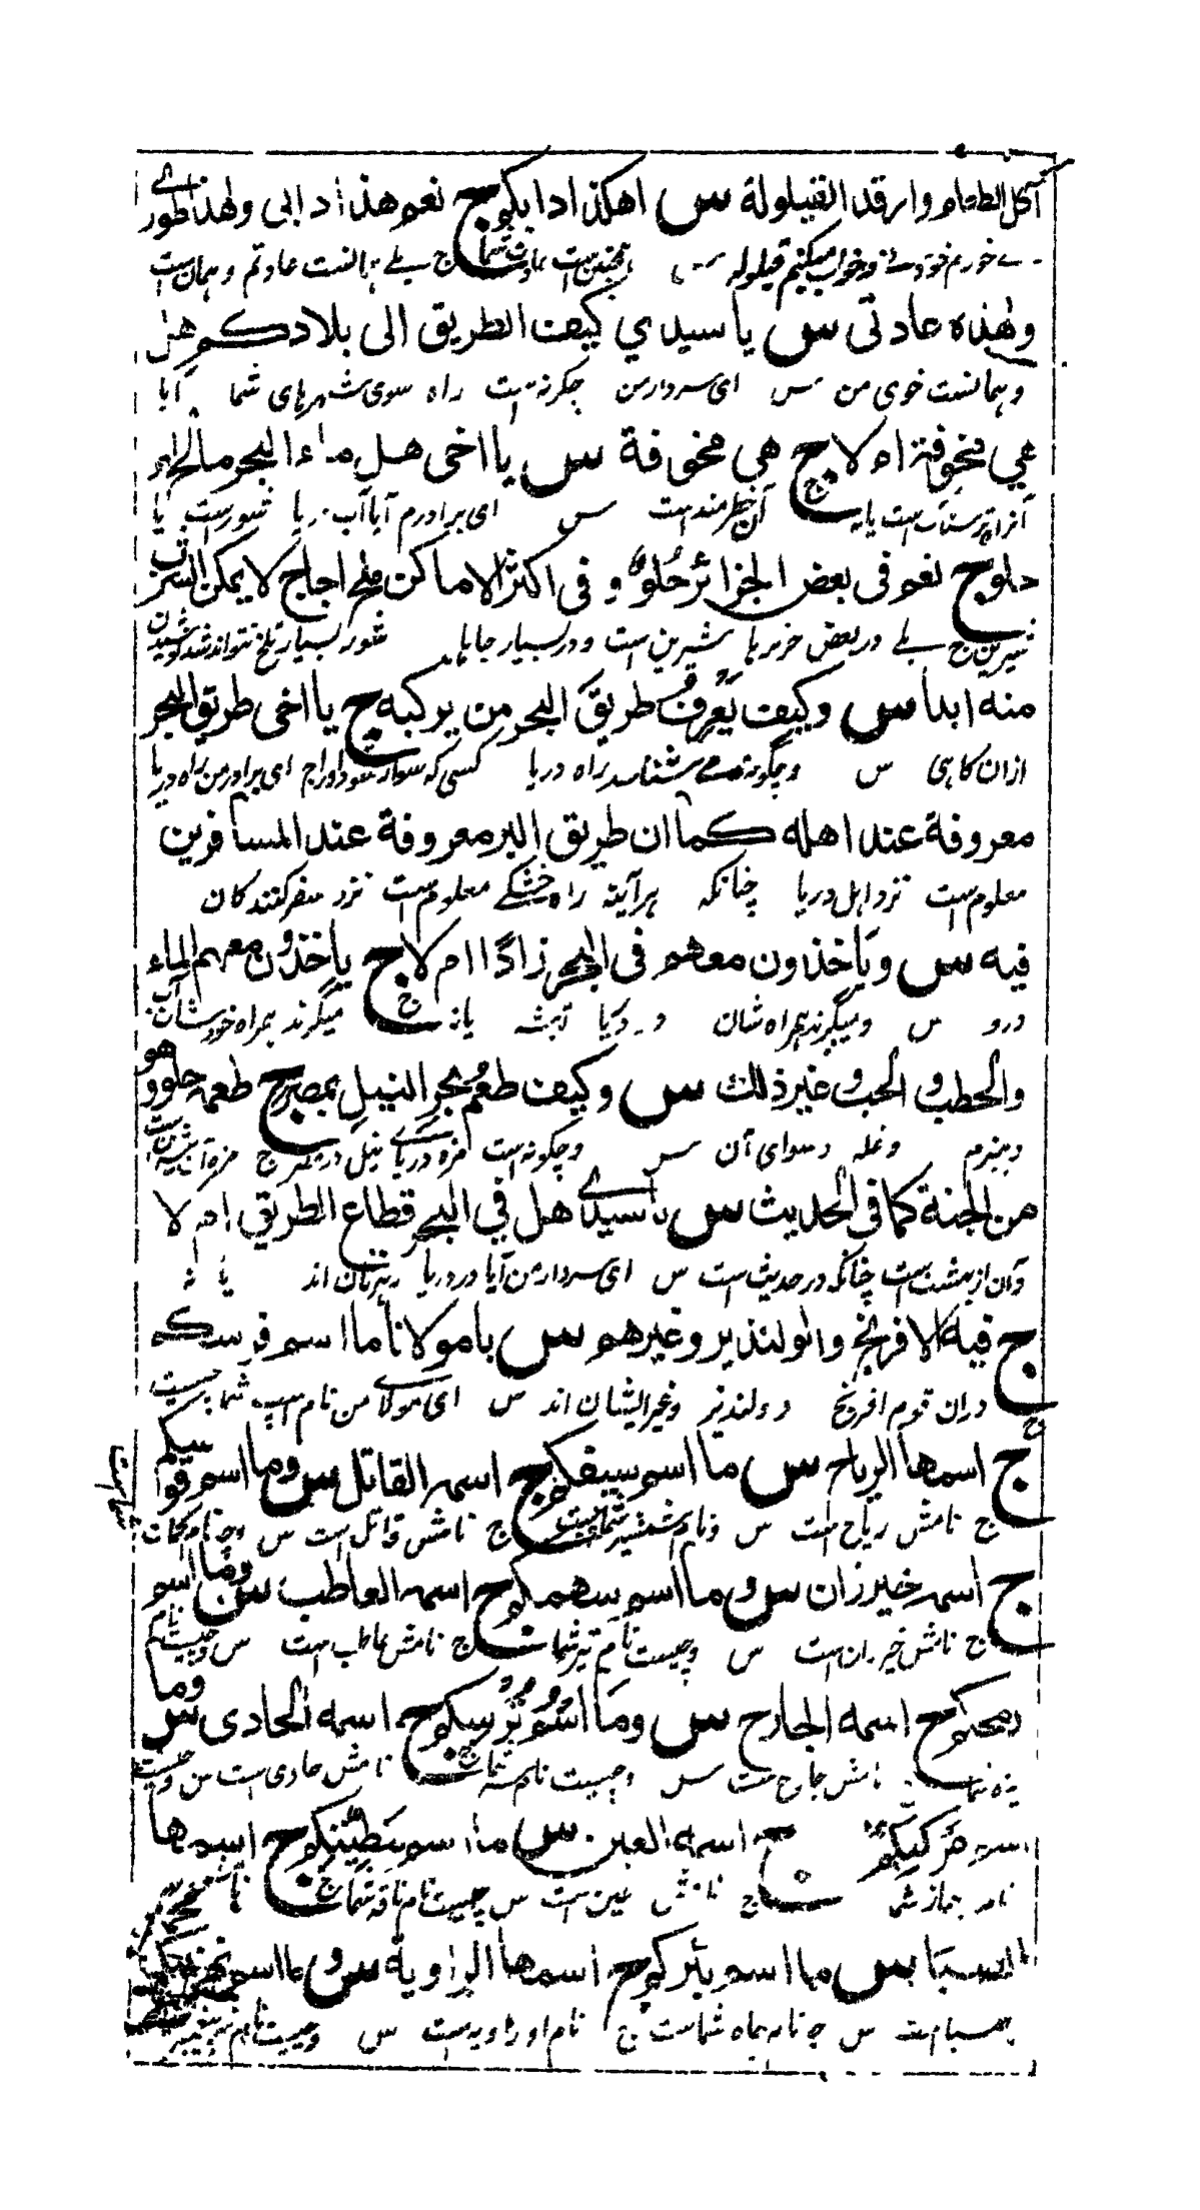 آكل الطعام وارقد القيلولة س اهكذا دابكم ج نعم هذا دابى ولهذا طورے
مے خورم خوردنے و خواب ميكنم قيلوله س همچنين است عادت شما ج بلے همانست عادتم و همان است
ولهذه عادتى س يا سيدي كيف الطريق الى بلادكم هل
و همانست خوى من س اى سردار من چگونه است راه سوى شهرهاى شما آيا
هي مخوفة ام لا ج هي مخوفة س يا اخى هل ماء البحر مالح ام
آن خطرمند است س اى برادرم آيا آب دريا شور است يا
حلو ج نعم فى بعض الجزائر حلو و فى اكثر الاماكن ملح اجاج لا يمكن الشرب
شيرين ج بلے در بعض جزيرها شيرين است و در بسيار جاها شور بسيار تلخ نتواند شد نوشيدن
منه ابدا س وكيف يعرف طريق البحر من يركبه ج يا اخى طريق البحر
ازان گاهى س و چگونه مے شناسد راه دريا كسى كه سوار شود اورا ج اى برادر من راه دريا
معروفة عند اهله كما ان طريق البر معروفة عند المسافرين
معلوم است نزد اهل دريا چنانكه هرآينه راه خشكے معلوم است نزد سفر كنندگان
فيه س وياخذون معهم فى البحر زادا ام لا ج ياخذون معهم الماء
درو س و ميگيرند همراه شان در دريا توشه يا نه ج ميگيرند همراه خودشان آب
والحطب والحب وغير ذلك س وكيف طعم بحر النيل بمصر ج طعمه حلو وهو
و هيزم و غله و سواى آن س و چگونه است مزه درياے نيل در مصر ج مزه آن شيرين است
من الجنة كما فى الحديث س يا سيدے هل في البحر قطاع الطريق ام لا
و آن از بهشت است چنانكه در حديث است س اى سردار من آيا در دريا رهزنان اند يا نه
ج فيه الافرنج والولنديز وغيرهم س يا مولانا ما اسم فرسكم
دران قوم افرنج و ولنديز و غير ايشان اند س اى مولاے من نام اسپ شما چيست
ج اسمها الرياح س ما اسم سيفكم ج اسمه القاتل س وما اسم قوسكم
ج نامش رياح است س و نام شمشير شما چيست ج نامش قاتل است س و چه نام كمان شما است
ج اسمه خيزران س وما اسم سهمكم ج اسمه العاطب س وما اسم
ج نامش خيزران است س و چيست نام تير شما ج نامش عاطب است س و چيست نام
رمحكم ج اسمه الجارح س وما اسم ترسكم ج اسمه الحادى س وما
نيزه شما ج نامش جارح است س و چيست نام ج نامش حادى است س و چيست
اسم ج اسمه العين س ما اسم ج اسمها
نام ج نامش عين است س چيست نام ناقه شما ج
س ما اسم بئركم ج اسمها الراوية س وما اسم
س چه نام چاه شماست ج نام او راويه است س و چيست نام